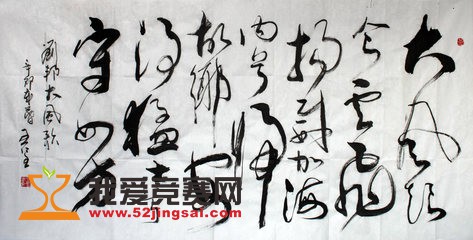 大風起
兮雲飛
揚威加海
内兮歸
故鄉安
得猛士
守四方
劉邦大風歌
辛卯
我爱竞赛网
www.52jingsai.com